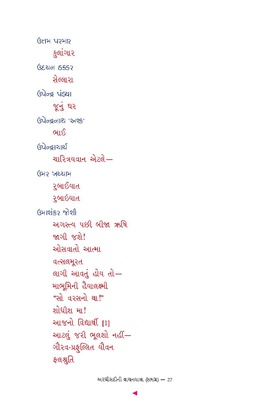 ઉત્તમ પરમાર
કુલાંગાર
ઉદયન ઠક્કર
સેલ્લારા
ઉપેન્દ્ર પંડ્યા
જૂનું ઘર
ઉપેન્દ્રનાથ 'અશ્ક'
ભાઈ
ઉપેન્દ્રાચાર્ય
ચારિત્રયવાન એટલે—
ઉમર ખય્યામ
રુબાઈયાત
રુબાઇયાત
ઉમાશંકર જોશી
અગસ્ત્ય પછી બીજા ઋષિ
જાગી જશે!
ઓસવાતો આત્મા
વત્સલમૂરત
લાગી આવતું હોય તો—
માતૃભૂમિની હૈયાલક્ષ્મી
"સો વરસનો થા!"
શોધીશ મા!
આજનો વિદ્યાર્થી [1]
આટલું જરી ભૂલશો નહીં—
ગૌરવ-પ્રફુલ્લિત યૌવન
ફલશ્રુતિ
અરધી સદીની વાચનયાત્રા (ભાગ) — 27